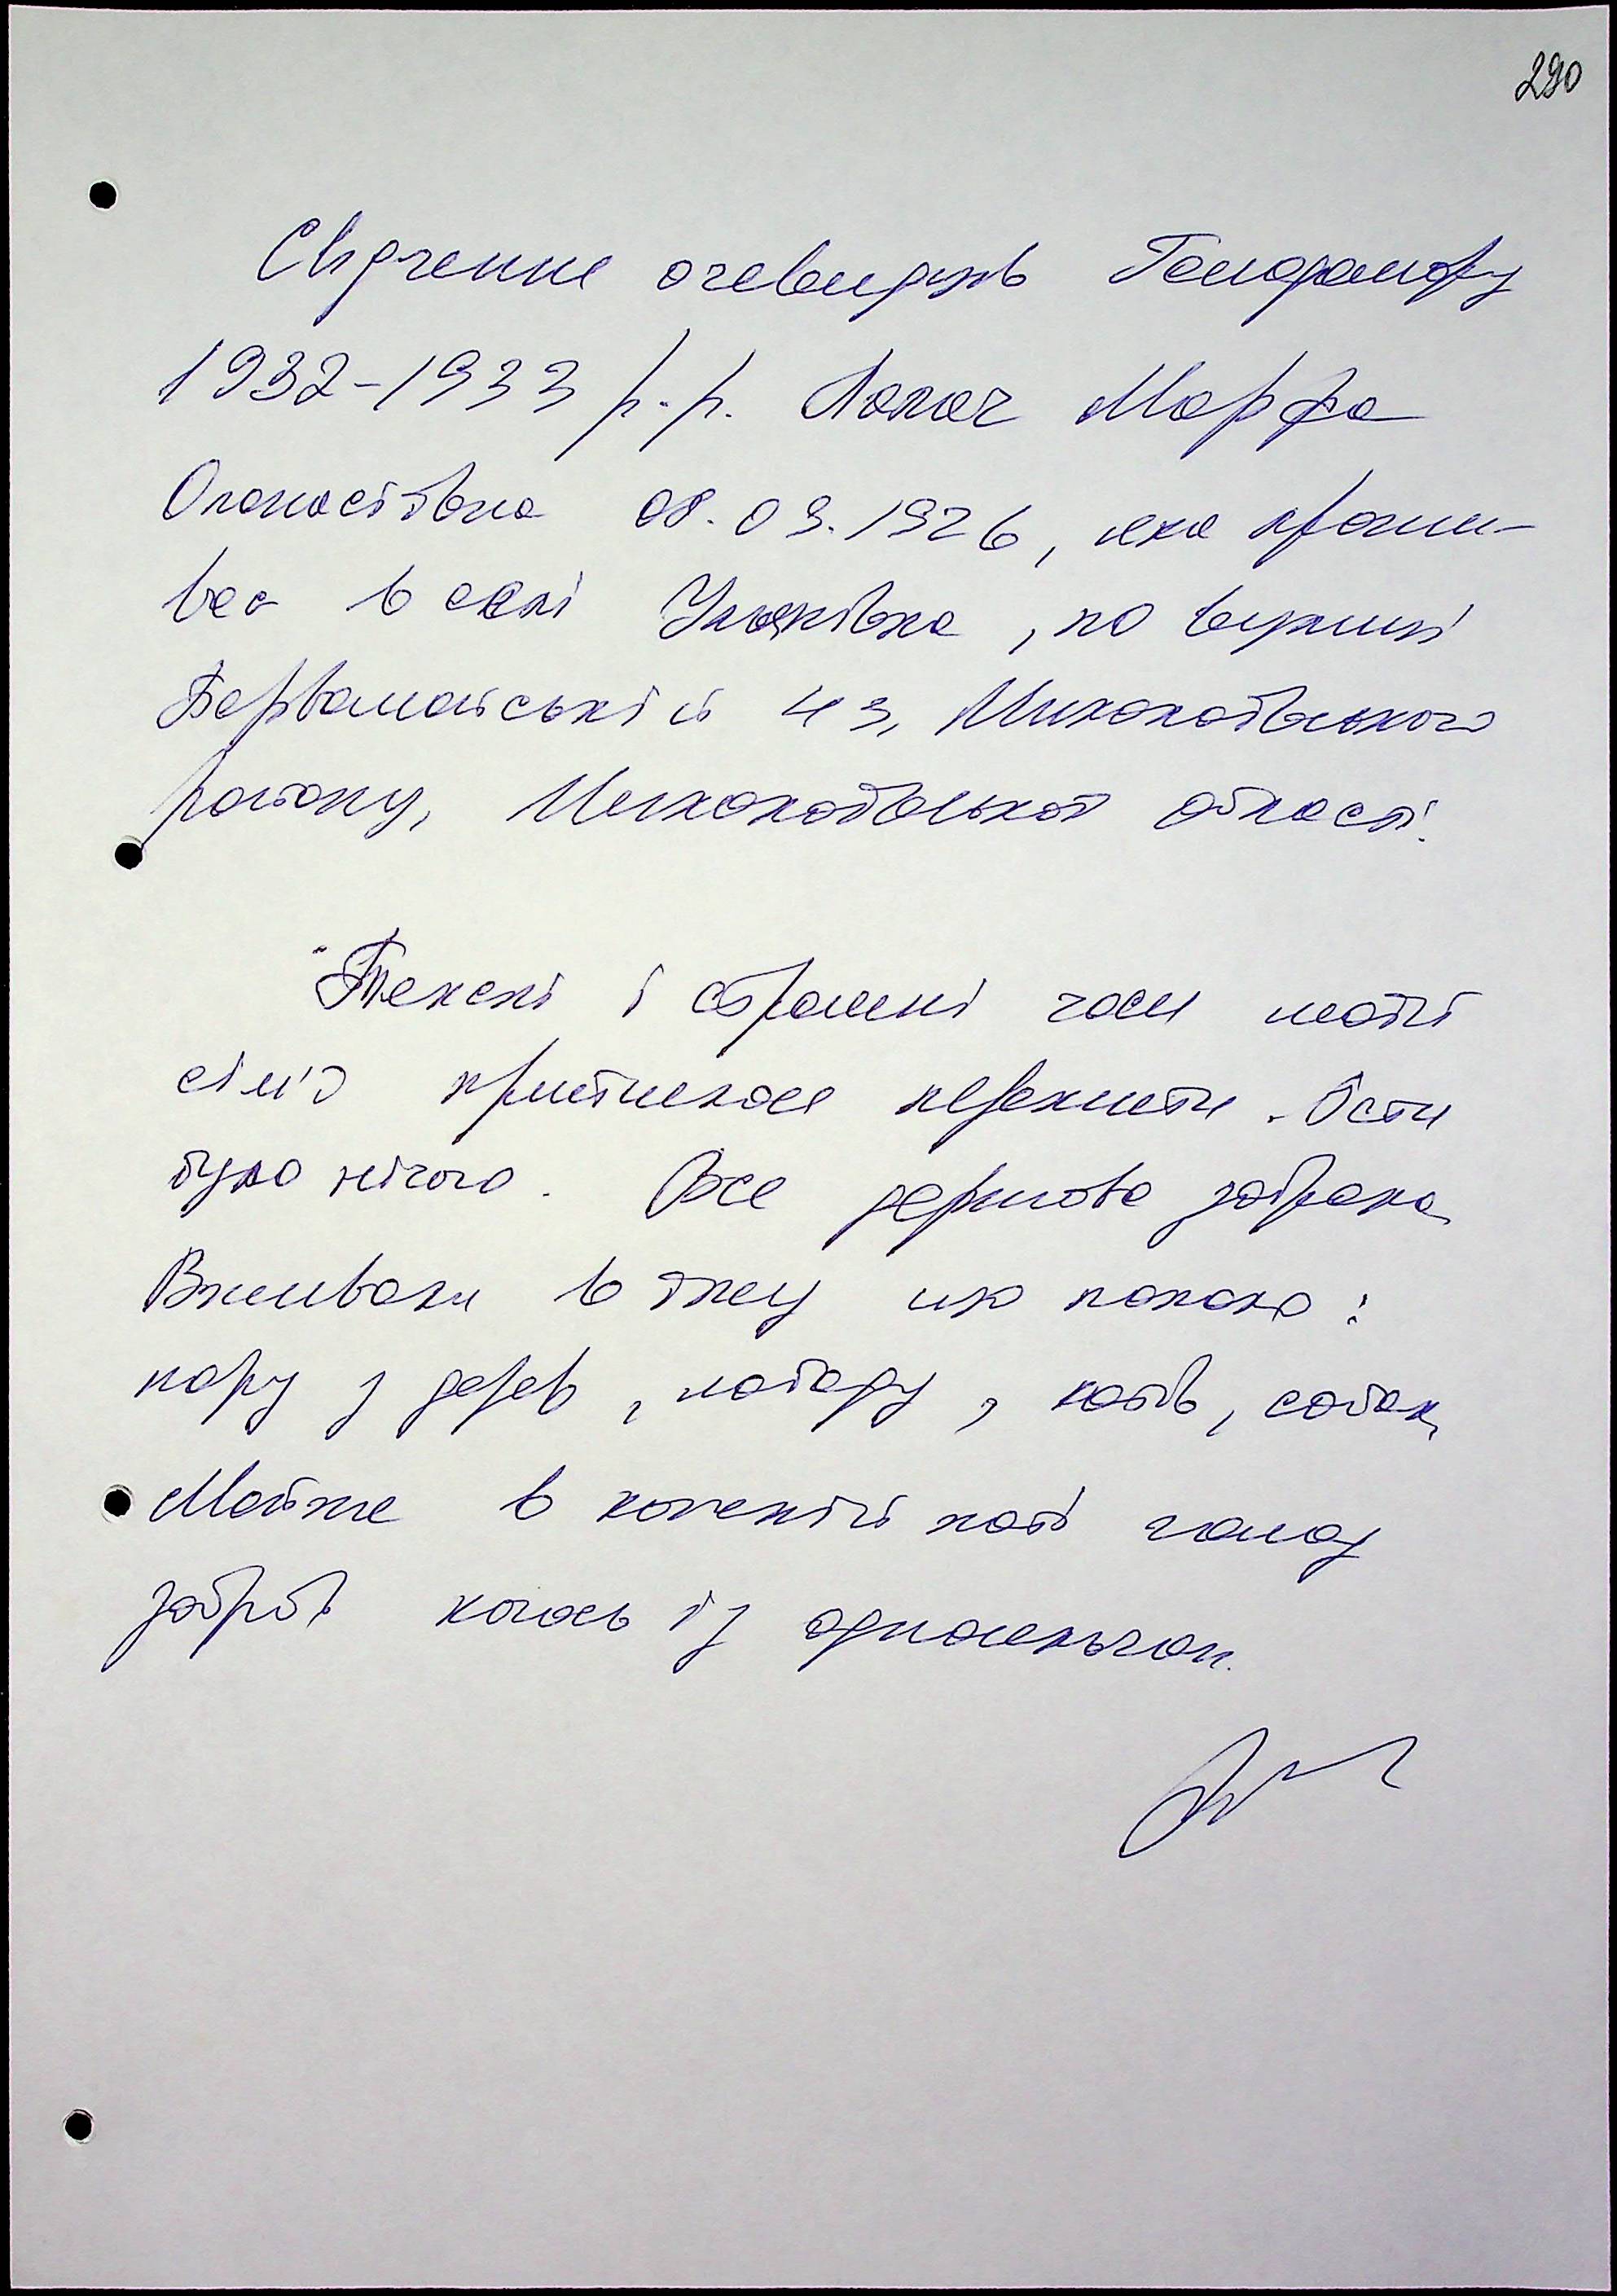 290
Свідчення очевидців Голодомору
1932-1933 р.р. Лопач Марфа
Опанасівна 08.03.1926, яка прожи-
ває в селі Улянівка, по вулиці
Первомайській 43, Миколаївського
району, Миколаївської області.
"Тяжкі і страшні часи моїй
сім'ї прийшлося пережити. Їсти
було нічого. Все держава забрала.
Вживали в їжу що попало:
кору з дерев, лободу, котів, собак.
Майже в кожній хаті голод
забрав когось із односельчан.